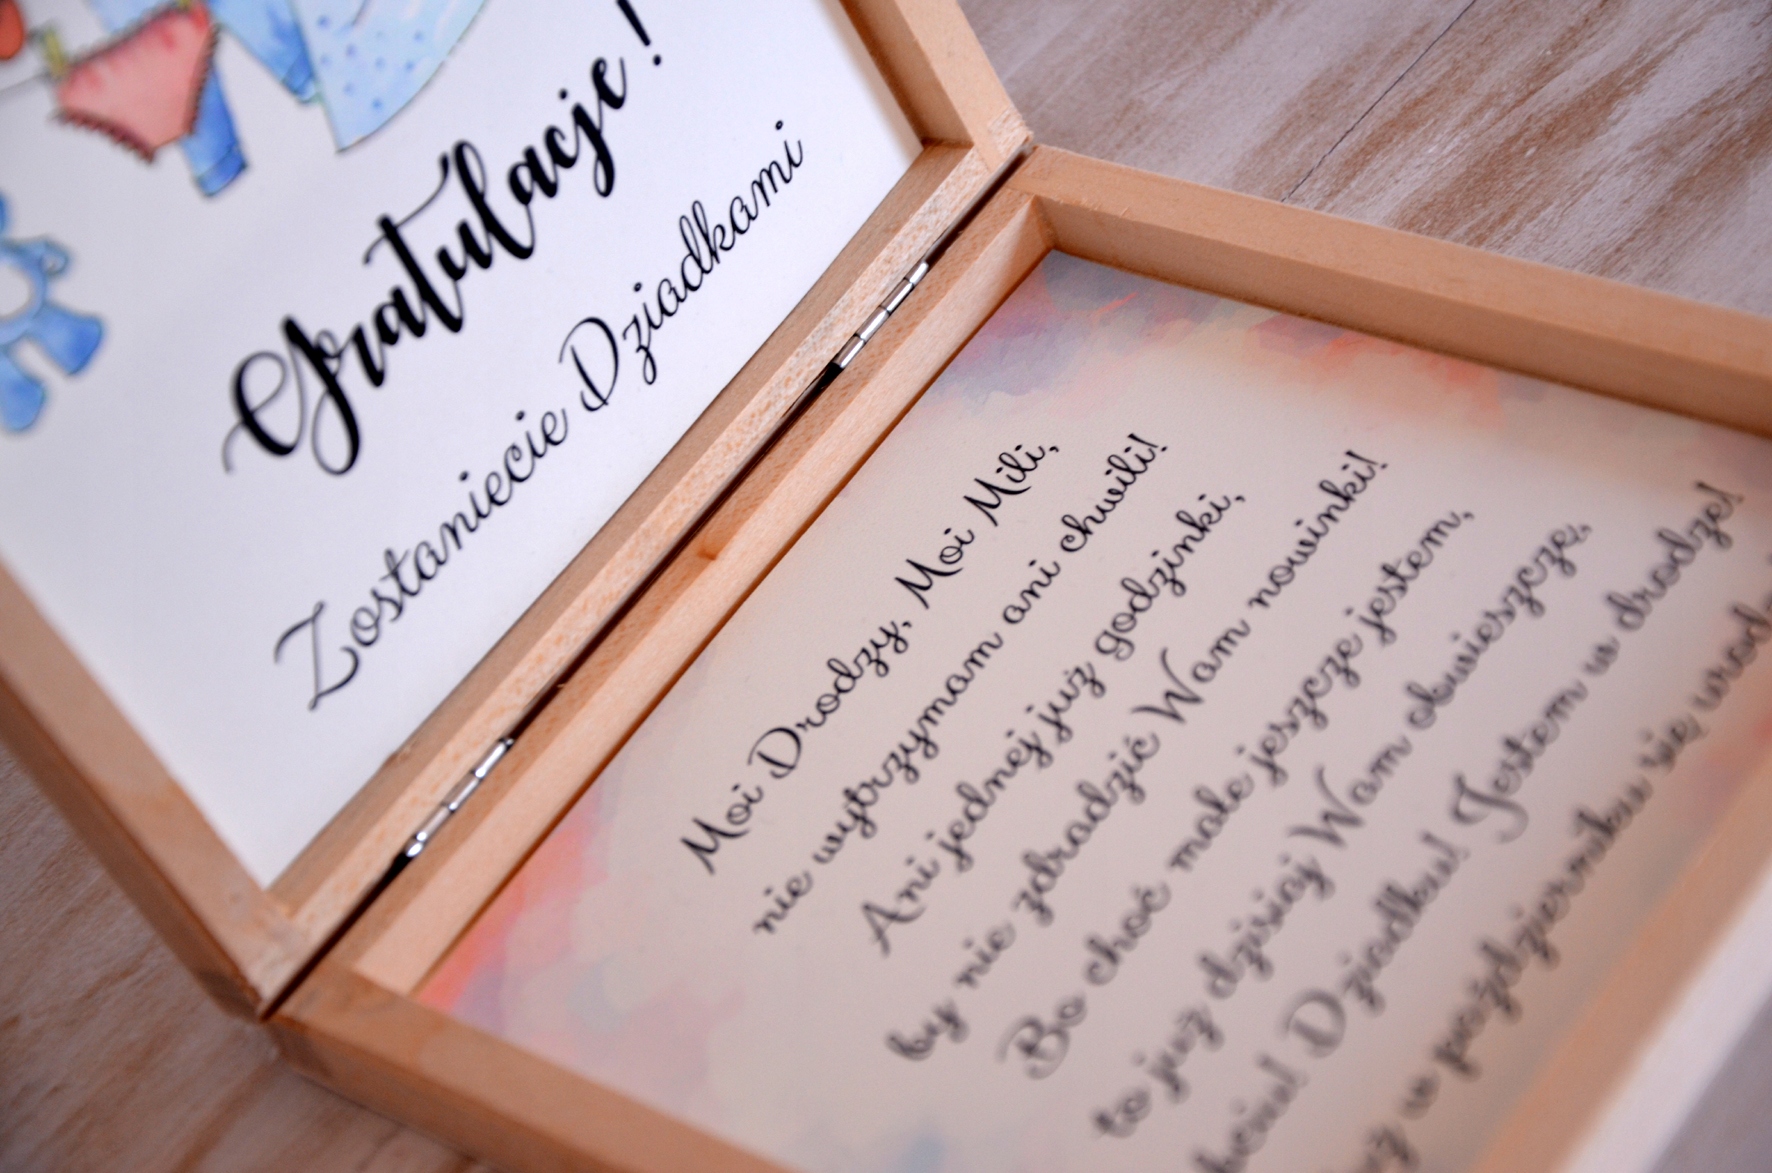 Gratulacje!
Zostaniecie Dziadkami
Moi Drodzy, Moi Mili,
nie wytrzymam ani chwili!
Ani jednej już godzinki,
by nie zdradzić Wam nowinki!
Bo choć małe jeszcze jestem,
to już dzisiaj Wam obwieszczę,
Dziadku! Jestem w drodze!
w październiku się